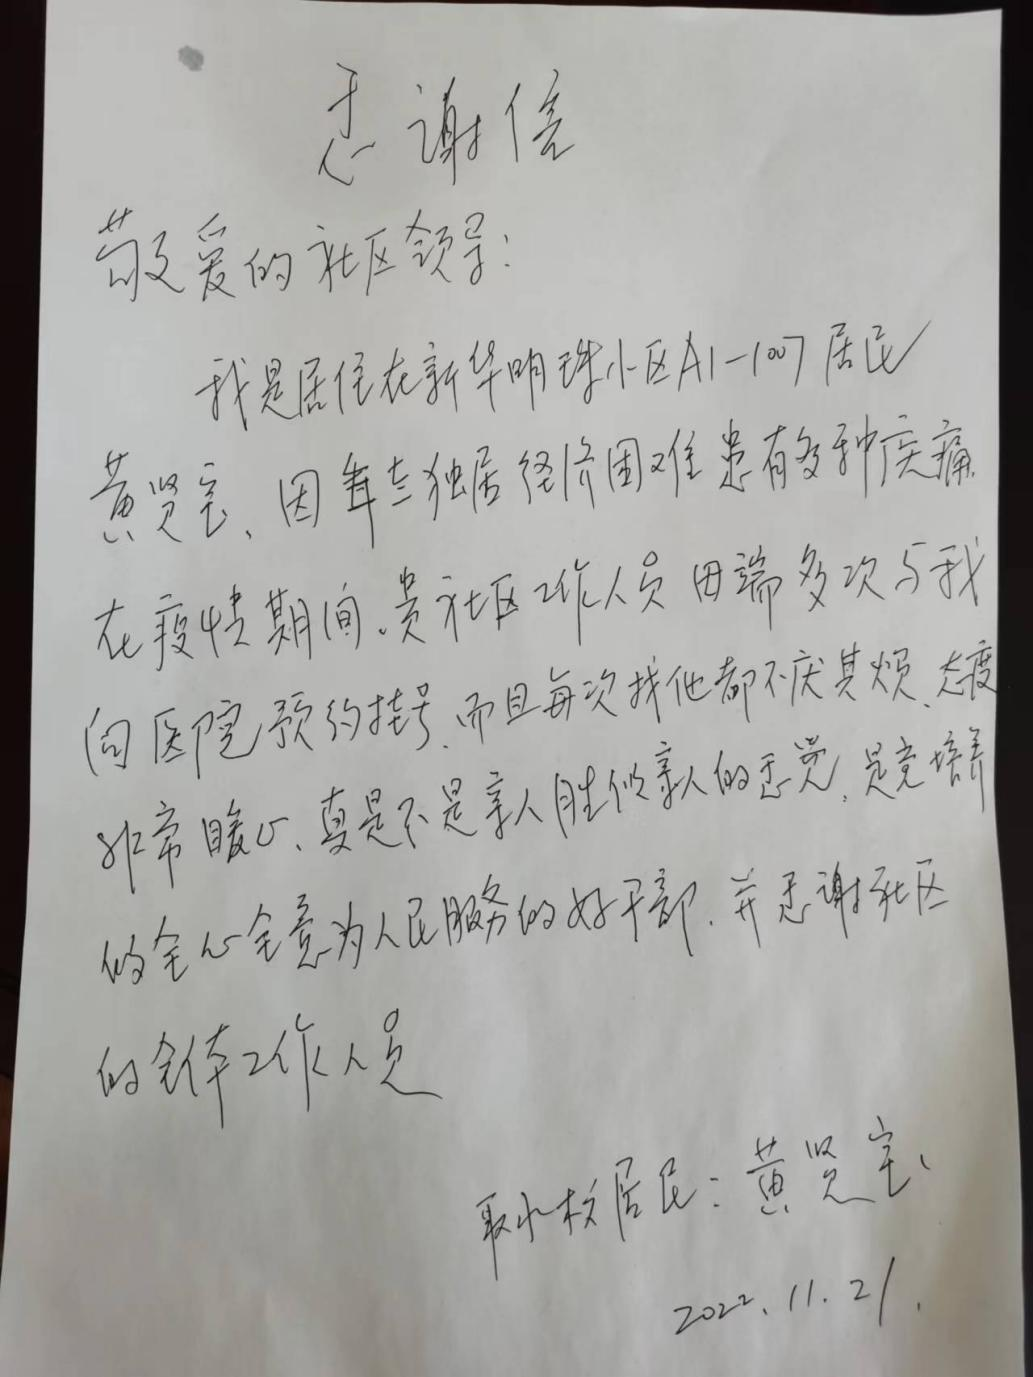 感谢信
敬爱的社区领导:
我是居住在新华明珠小区A1-1007居民
黄贤宝、因年老独居经济困难患有多种疾痛
在疫情期间、贵社区工作人员田端多次与我
向医院预约挂号、而且每次找他都不厌其烦、态度
非常暖心、真是不是亲人胜似亲人的感觉、是党培养
的全心全意为人民服务的好干部、并感谢社区
的全体工作人员
居民:黄贤宝、
2022.11.21.